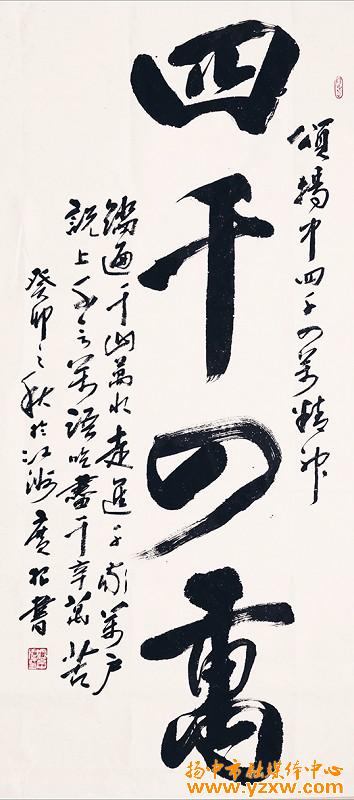 頌揚中四千四萬精神
四千四萬
踏遍千山萬水走進千家萬户
說上千言萬語吃盡千辛萬苦
癸卯之秋於江洲廣松書
扬中市融媒体中心
www.yzxw.com